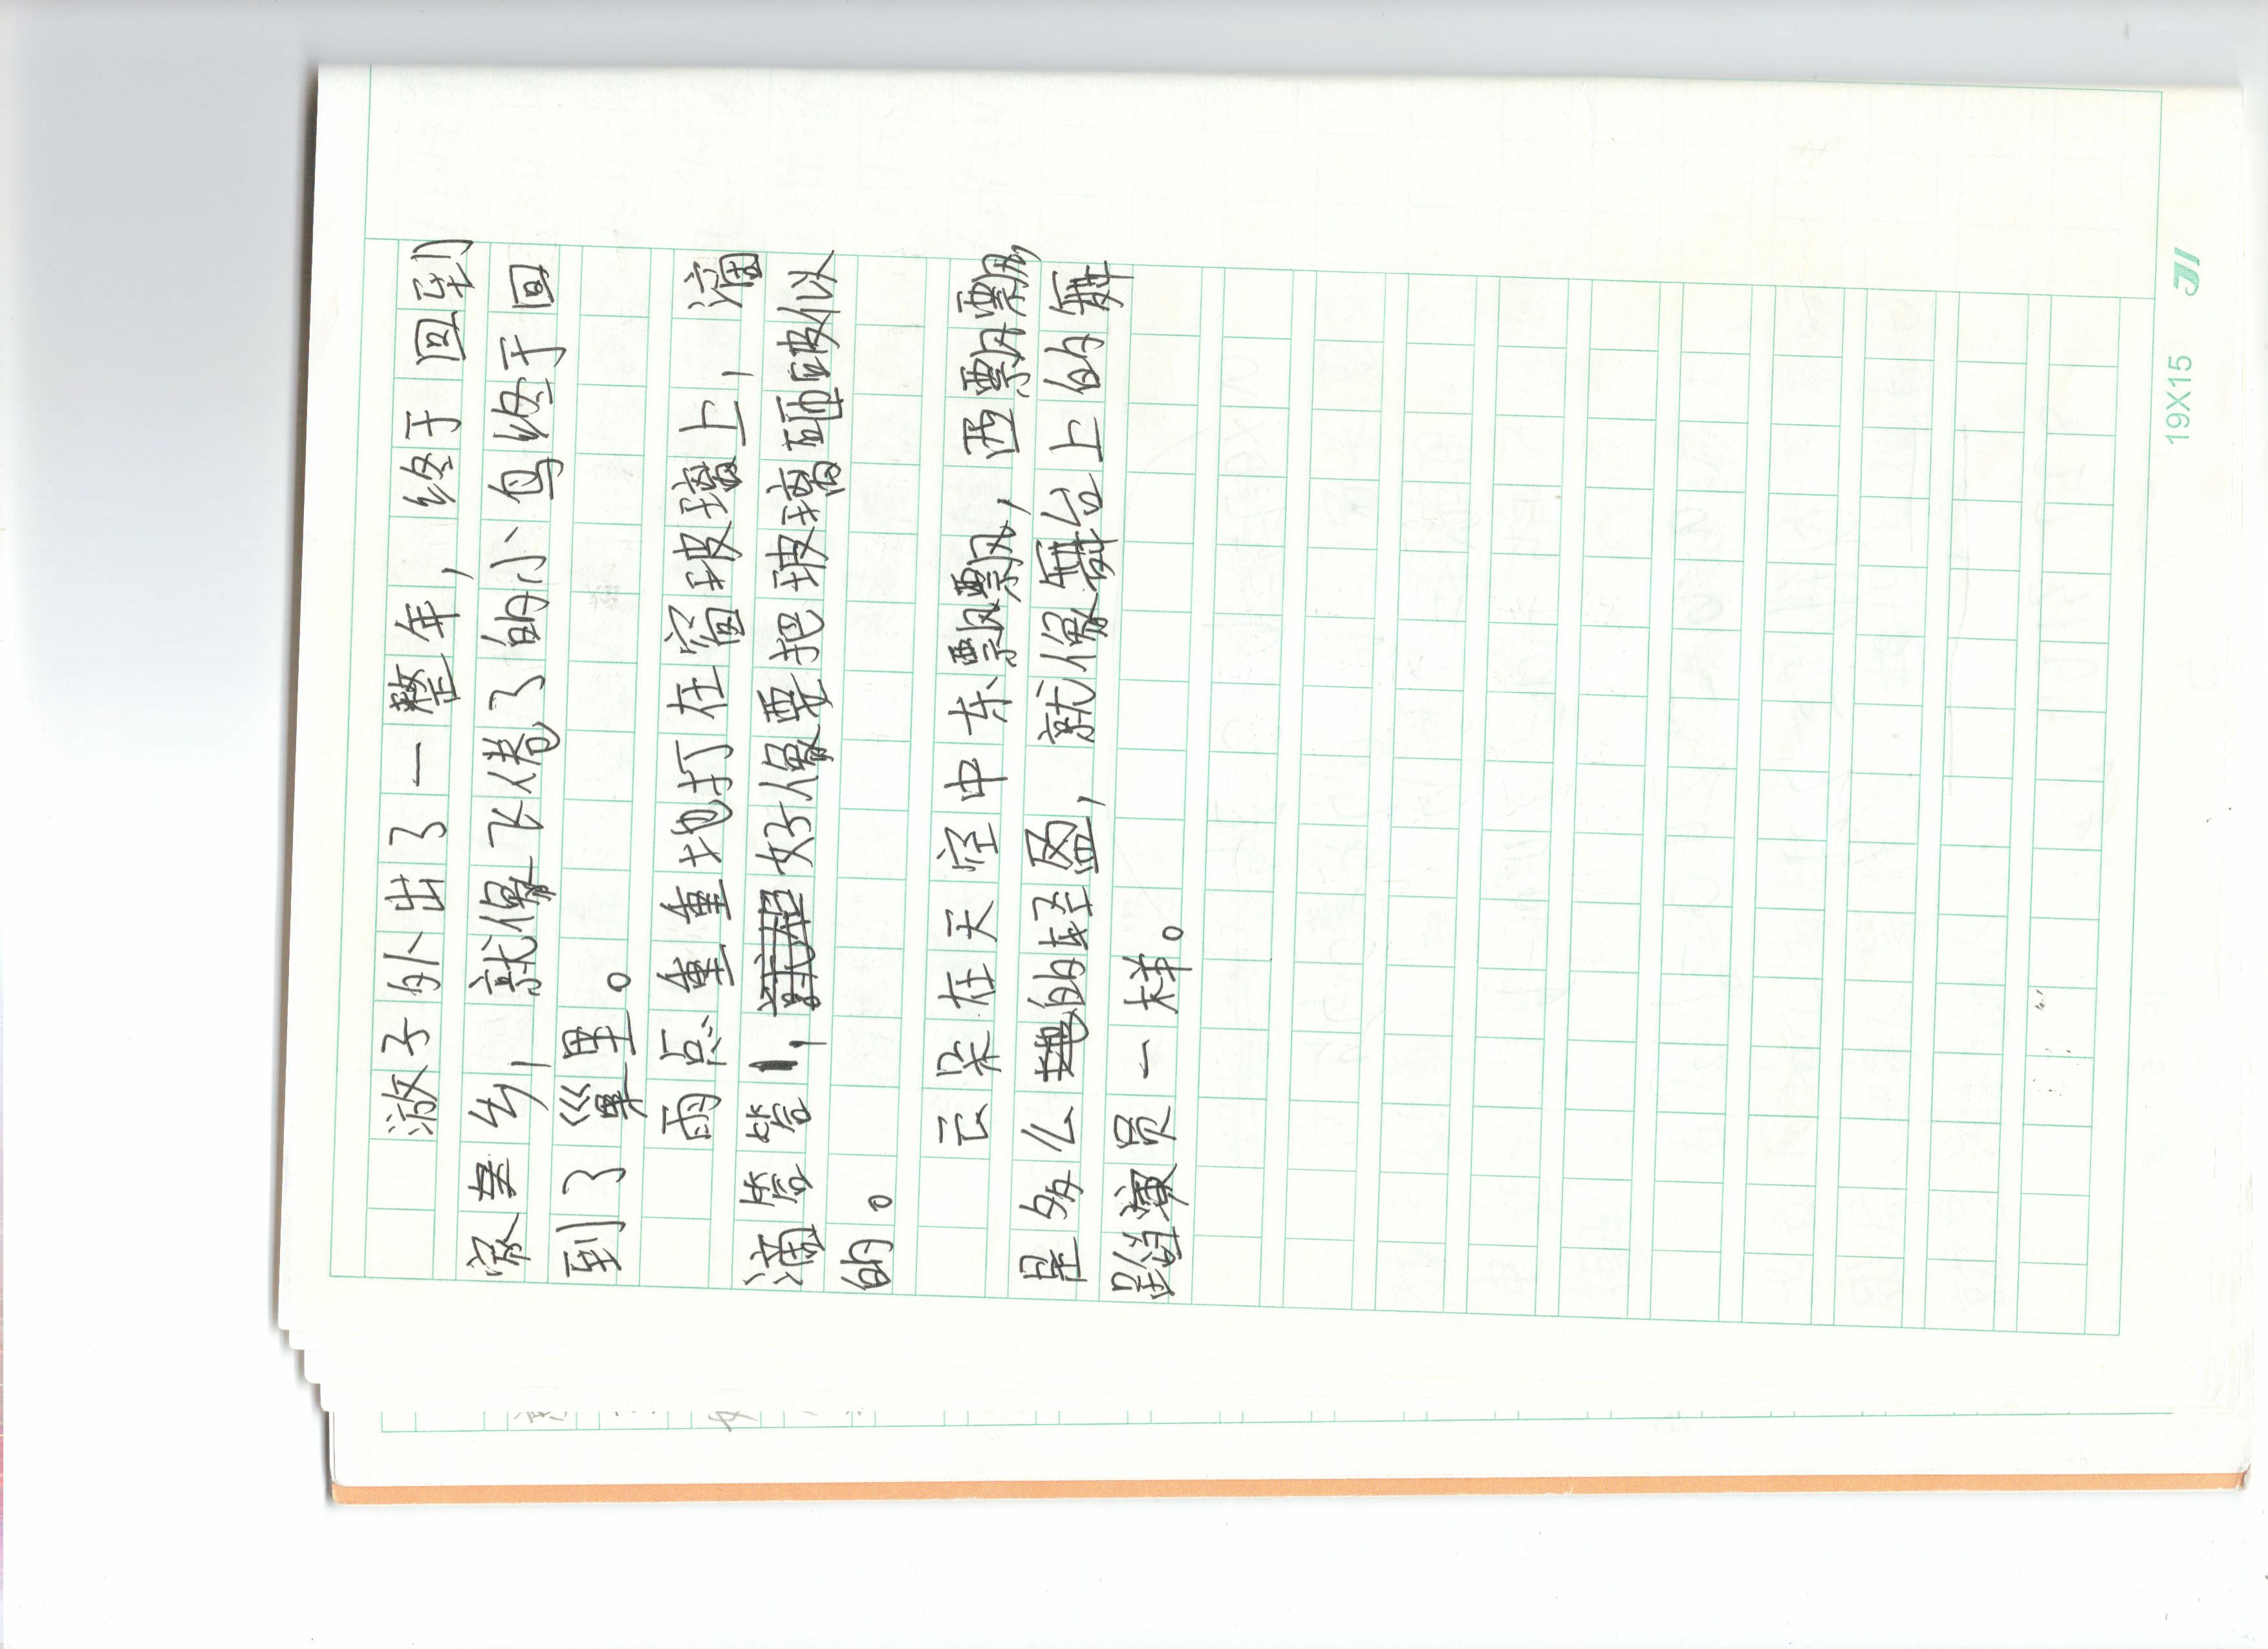 游子外出了一整年，终于回到
家乡，就像飞倦了的小鸟终于回
到了巢里。
雨点重重地打在窗玻璃上，滴
滴答答，好像要把玻璃砸破似
的。
云朵在天空中东飘飘，西飘飘，
是多么的轻盈，就像舞台上的舞
蹈演员一样。
19X15